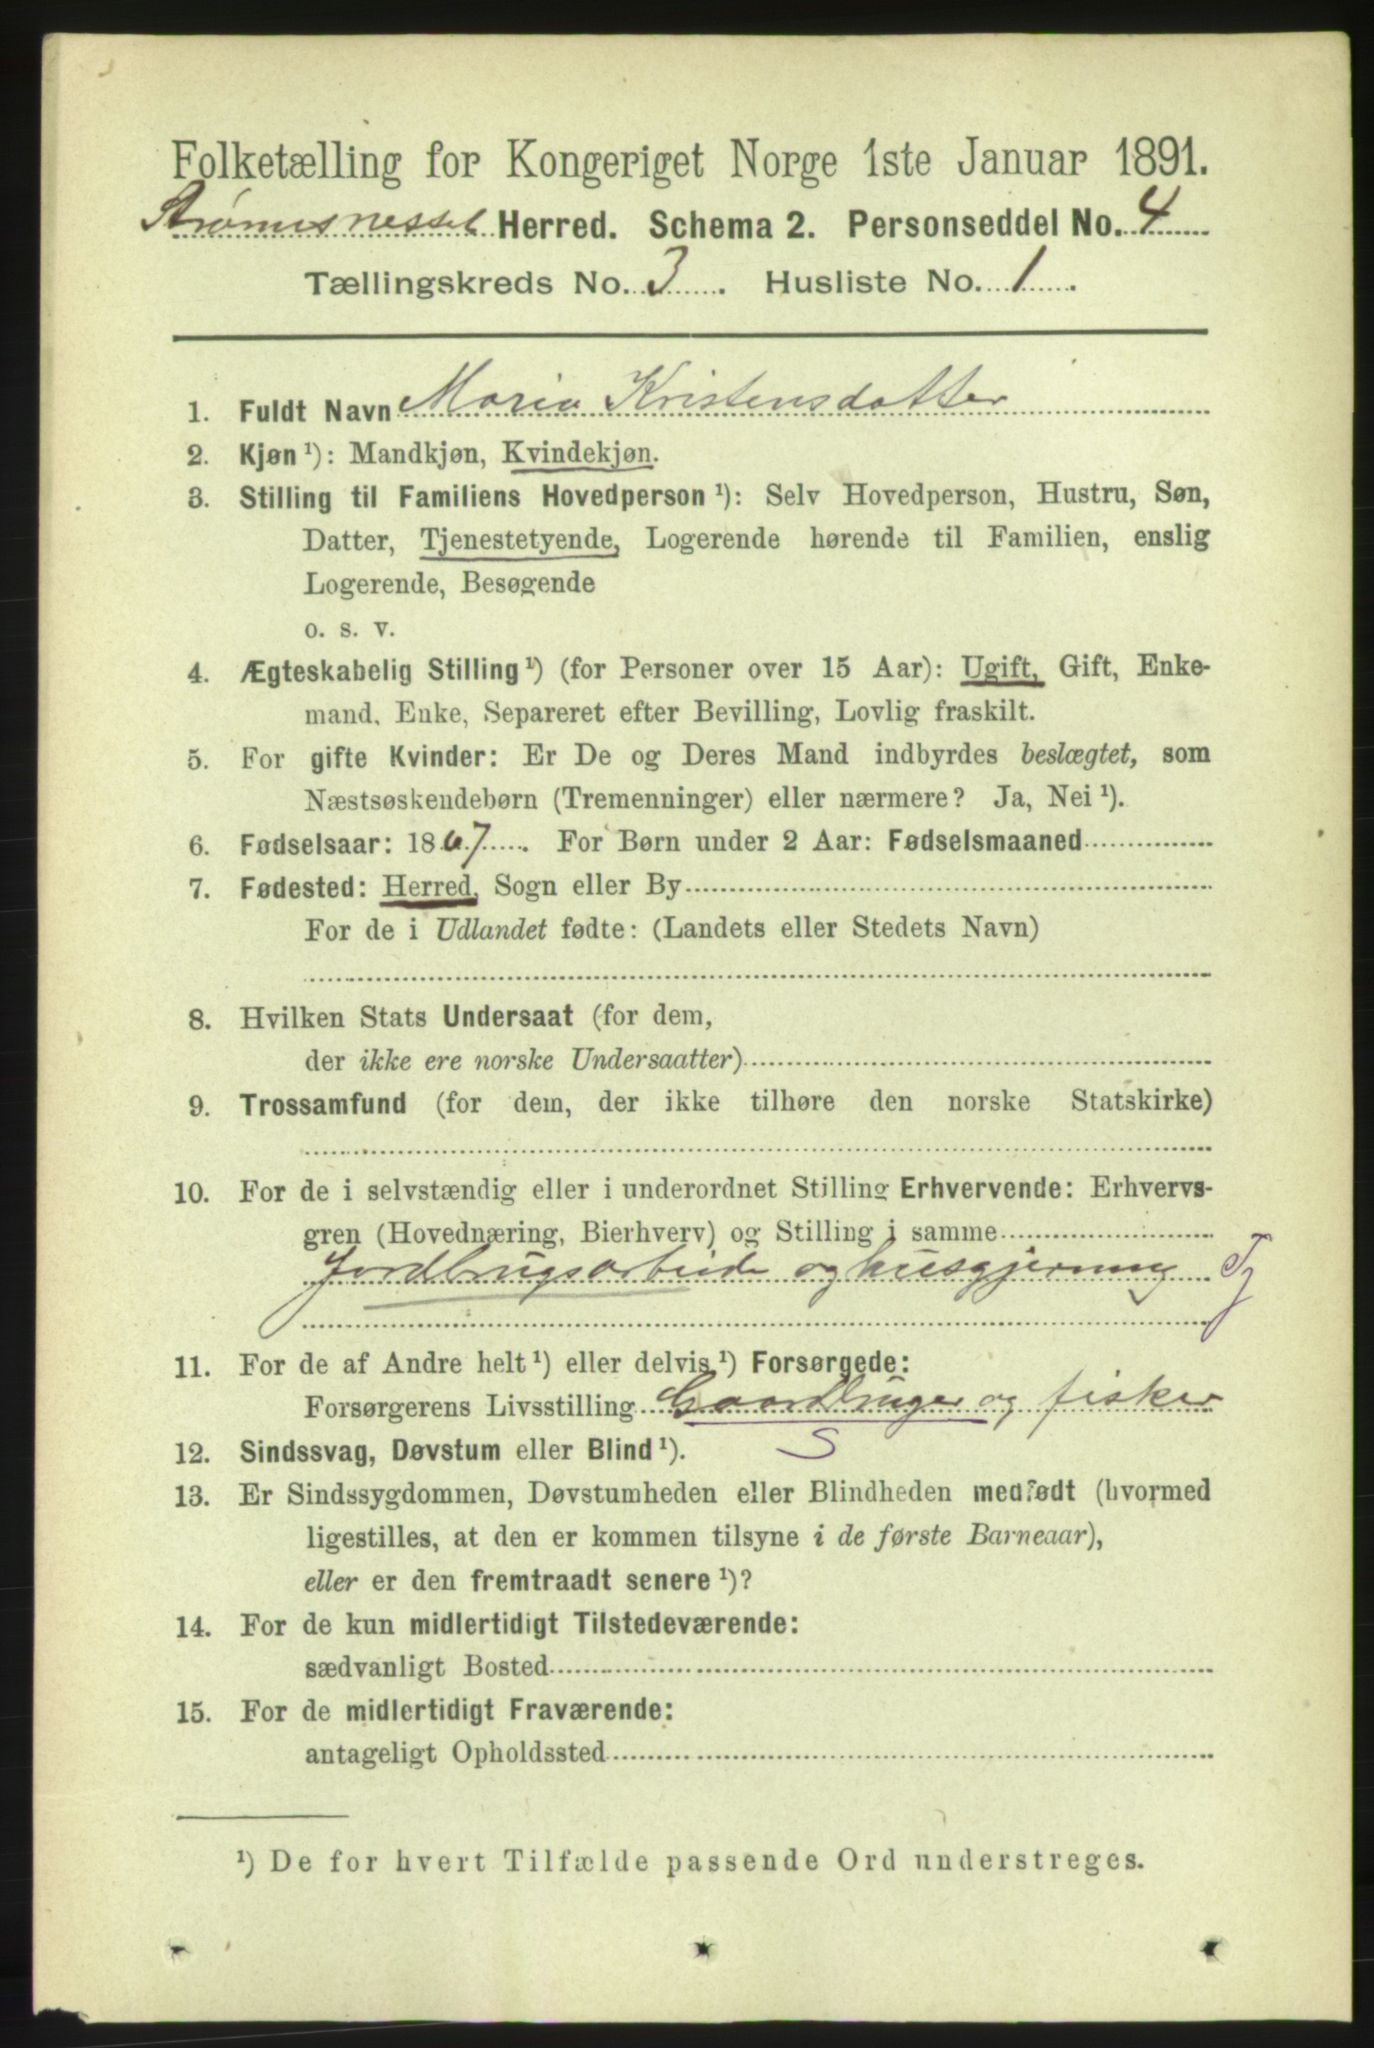 Folketælling for Kongeriget Norge 1ste Januar 1891.
Strømsnesset Herred. Schema 2. Personseddel No. 4
Tællingskreds No. 3. Husliste No. 1.
1. Fuldt Navn Maria Kristensdatter
2. Kjøn ¹): Mandkjøn, Kvindekjøn.
3. Stilling til Familiens Hovedperson ¹): Selv Hovedperson, Hustru, Søn,
Datter, Tjenestetyende, Logerende hørende til Familien, enslig
Logerende, Besøgende
o. s. v.
4. Ægteskabelig Stilling ¹) (for Personer over 15 Aar): Ugift, Gift, Enke-
mand, Enke, Separeret efter Bevilling, Lovlig fraskilt.
5. For gifte Kvinder: Er De og Deres Mand indbyrdes beslægtet, som
Næstsøskendebørn (Tremenninger) eller nærmere? Ja, Nei ¹).
6. Fødselsaar: 1867. For Børn under 2 Aar: Fødselsmaaned
7. Fødested: Herred, Sogn eller By
For de i Udlandet fødte: (Landets eller Stedets Navn)
8. Hvilken Stats Undersaat (for dem,
der ikke ere norske Undersaatter)
9. Trossamfund (for dem, der ikke tilhøre den norske Statskirke)
10. For de i selvstændig eller i underordnet Stilling Erhvervende: Erhvervs-
gren (Hovednæring, Bierhverv) og Stilling i samme
Jordbrugsarbeide og husgjerning Tj
11. For de af Andre helt ¹) eller delvis ¹) Forsørgede:
Forsørgerens Livsstilling Gaardbruger og fisker
S
12. Sindssvag, Døvstum eller Blind ¹).
13. Er Sindssygdommen, Døvstumheden eller Blindheden medfødt (hvormed
ligestilles, at den er kommen tilsyne i de første Barneaar),
eller er den fremtraadt senere ¹)?
14. For de kun midlertidigt Tilstedeværende:
sædvanligt Bosted
15. For de midlertidigt Fraværende:
antageligt Opholdssted
¹) De for hvert Tilfælde passende Ord understreges.